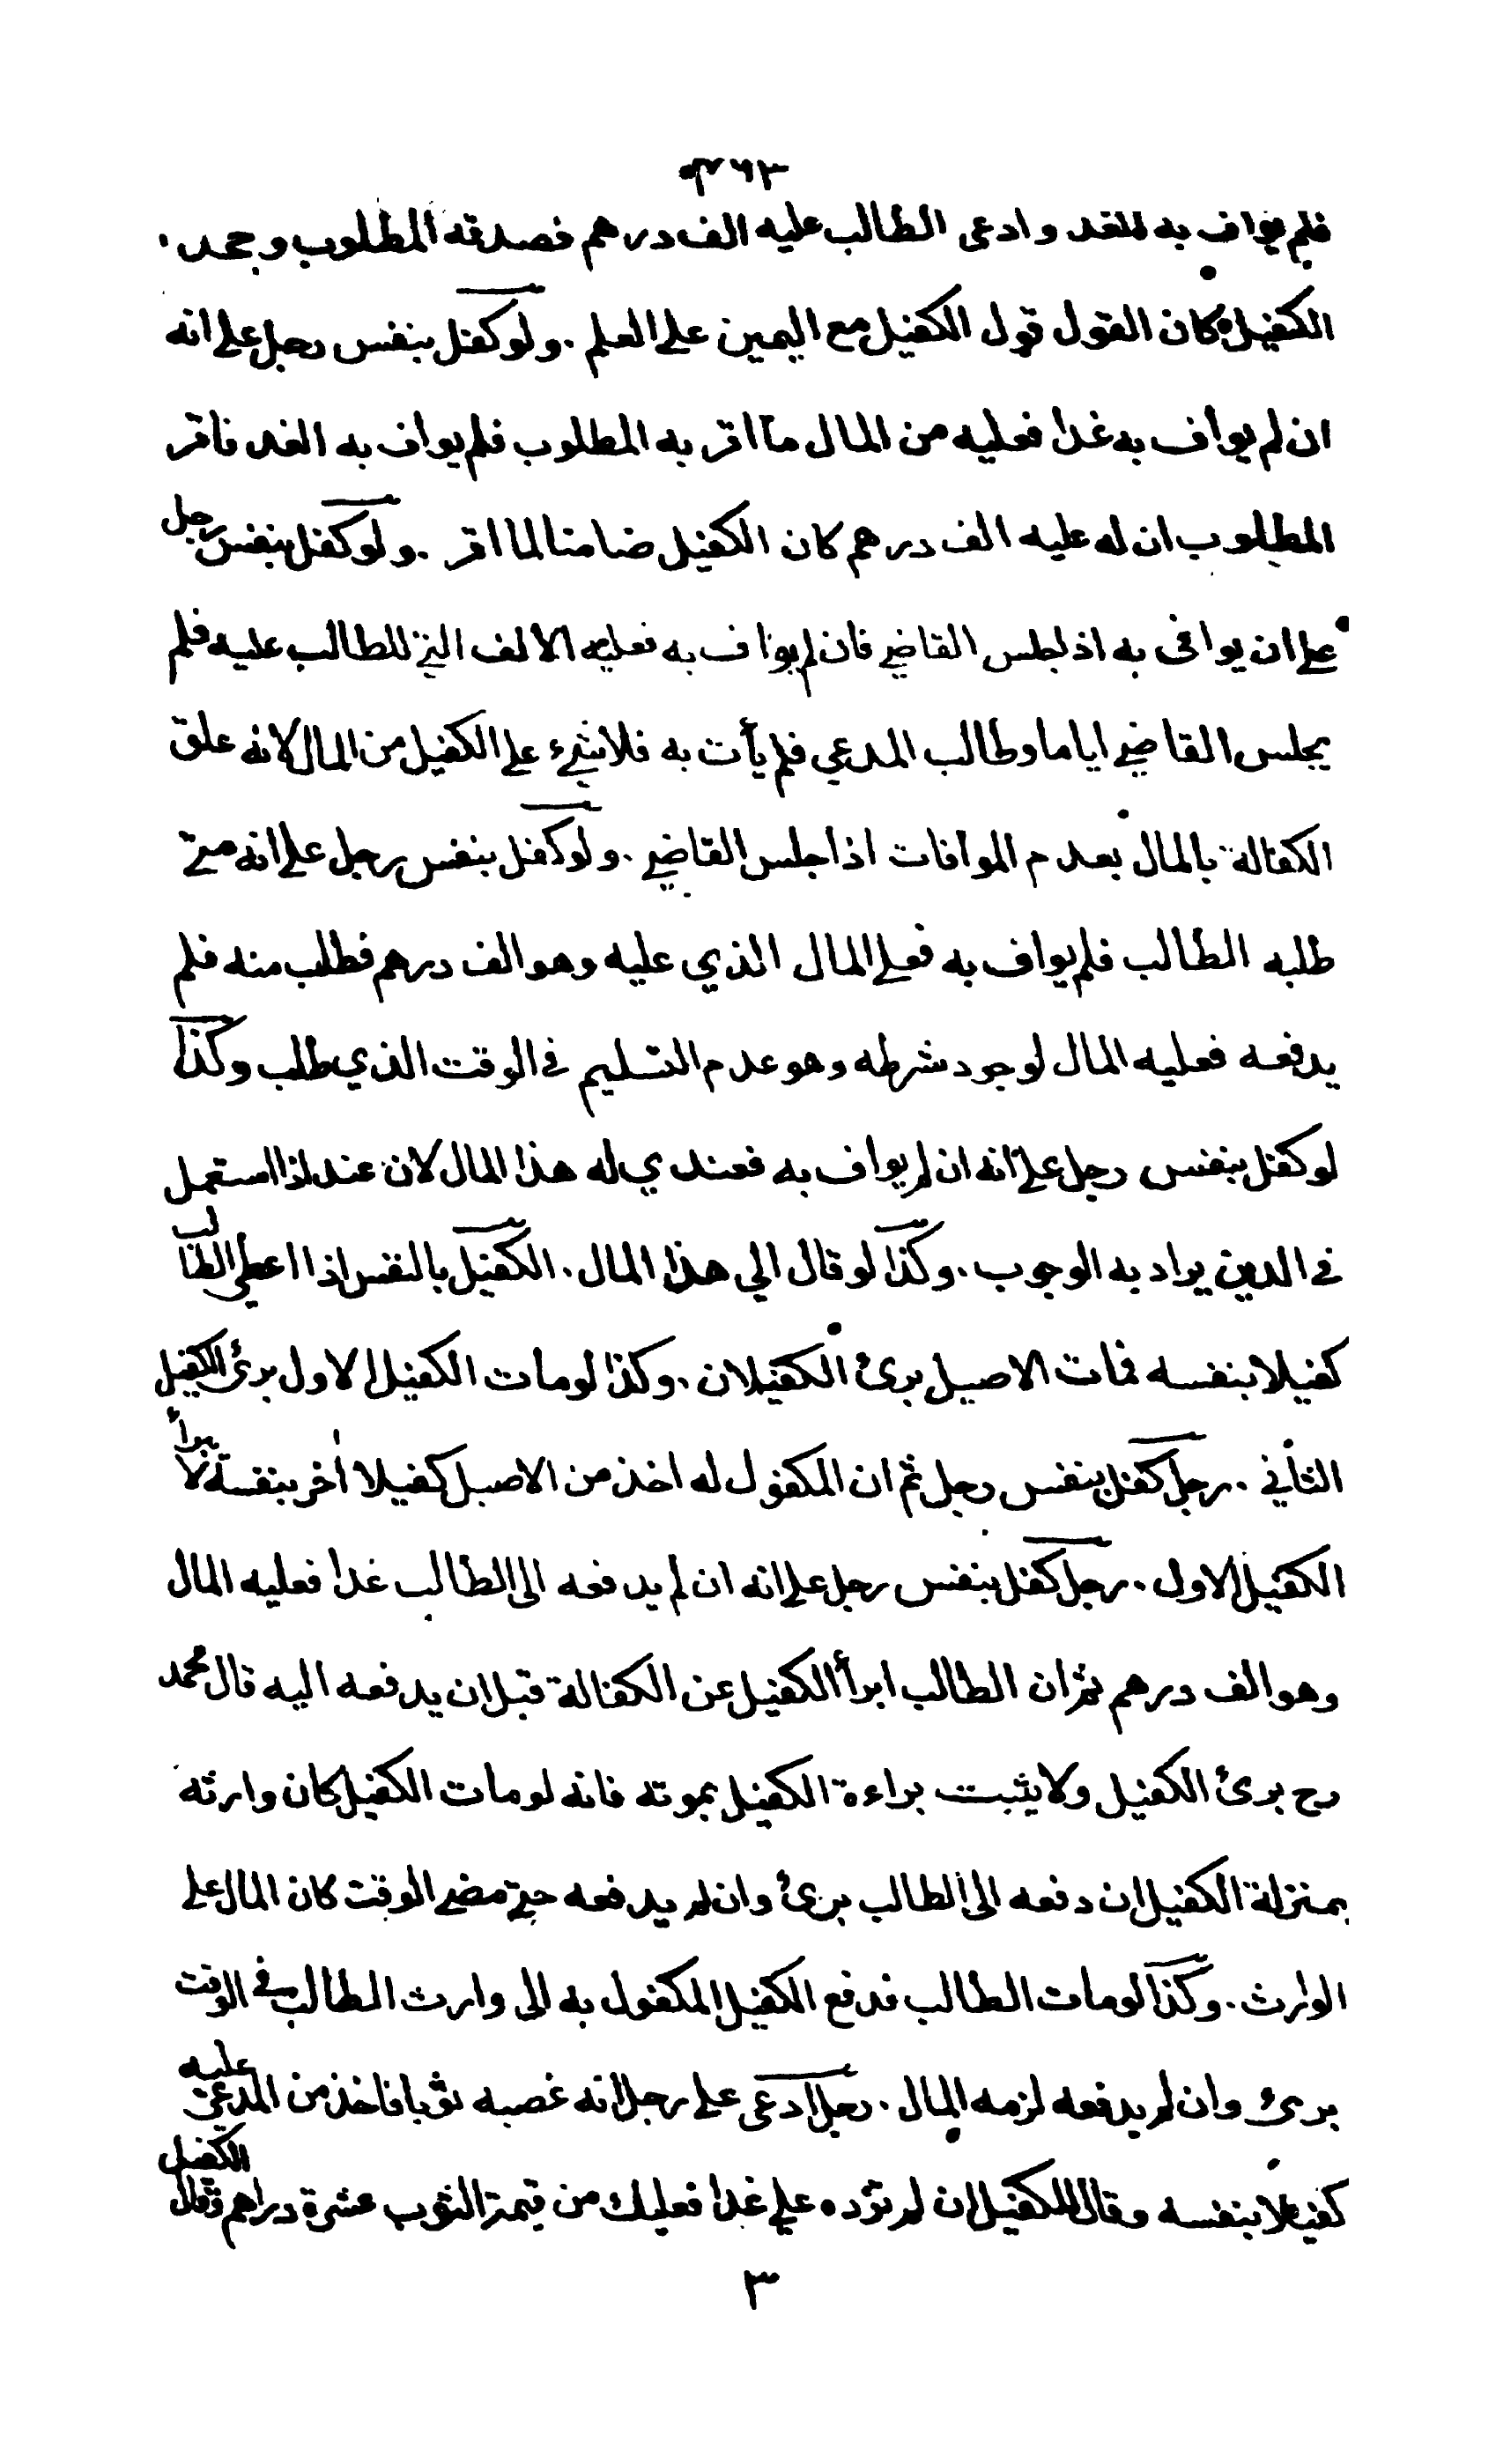 ٣٦٣
فلم يواف به الغد وادعى الطالب عليه الف درهم فصدقه المطلوب وجحد
الكفيل كان القول قول الكفيل مع اليمين على العلم . ولو كفل بنفس رجل على انه
ان لم يواف به غدا فعليه من المال ما اقر به المطلوب فلم يواف به الغد فاقر
المطلوب ان له عليه الف درهم كان الكفيل ضامنا لما اقر . ولو كفل بنفس رجل
على ان يوافى به اذا جلس القاضي فان لم يواف به فعليه الالف التي للطالب عليه فلم
يجلس القاضي اياما وطالب المدعي فلم يأت به فلا شيء على الكفيل من المال لانه علق
الكفالة بالمال بعدم الموافات اذا جلس القاضي . ولو كفل بنفس رجل على انه متى
طلبه الطالب فلم يواف به فعلي المال الذي عليه وهو الف درهم فطلب منه فلم
يدفعه فعليه المال لوجود شرطه وهو عدم التسليم في الوقت الذي طلب وكذا
لو كفل بنفس رجل على انه ان لم يواف به فعندي له هذا المال لان عند اذا استعمل
في الدين يراد به الوجوب . وكذا لو قال الي هذا المال . الكفيل بالنفس اذا اعطى الطالب
كفيلا بنفسه فمات الاصيل برئ الكفيلان . وكذا لو مات الكفيل الاول برئ الكفيل
الثاني . رجل كفل بنفس رجل ثم ان المكفول له اخذ من الاصيل كفيلا اخر بنفسه لا يبرأ
الكفيل الاول . رجل كفل بنفس رجل على انه ان لم يدفعه الى الطالب غدا فعليه المال
وهو الف درهم ثم ان الطالب ابرأ الكفيل عن الكفالة قبل ان يدفعه اليه قال محمد
رح برئ الكفيل ولا يثبت براءة الكفيل بموته فانه لو مات الكفيل كان وارثه
بمنزلة الكفيل ان دفعه الى الطالب برئ وان لم يدفعه حتى مضى الوقت كان المال على
الوارث . وكذا لو مات الطالب فدفع الكفيل المكفول به الى وارث الطالب في الوقت
برئ وان لم يدفعه لزمه المال . رجل ادعى على رجل انه غصبه ثوبا فاخذ من المدعى عليه
كفيلا بنفسه وقال للكفيل ان لم تؤده علي غدا فعليك من قيمة الثوب عشرة دراهم فقال الكفيل
٣